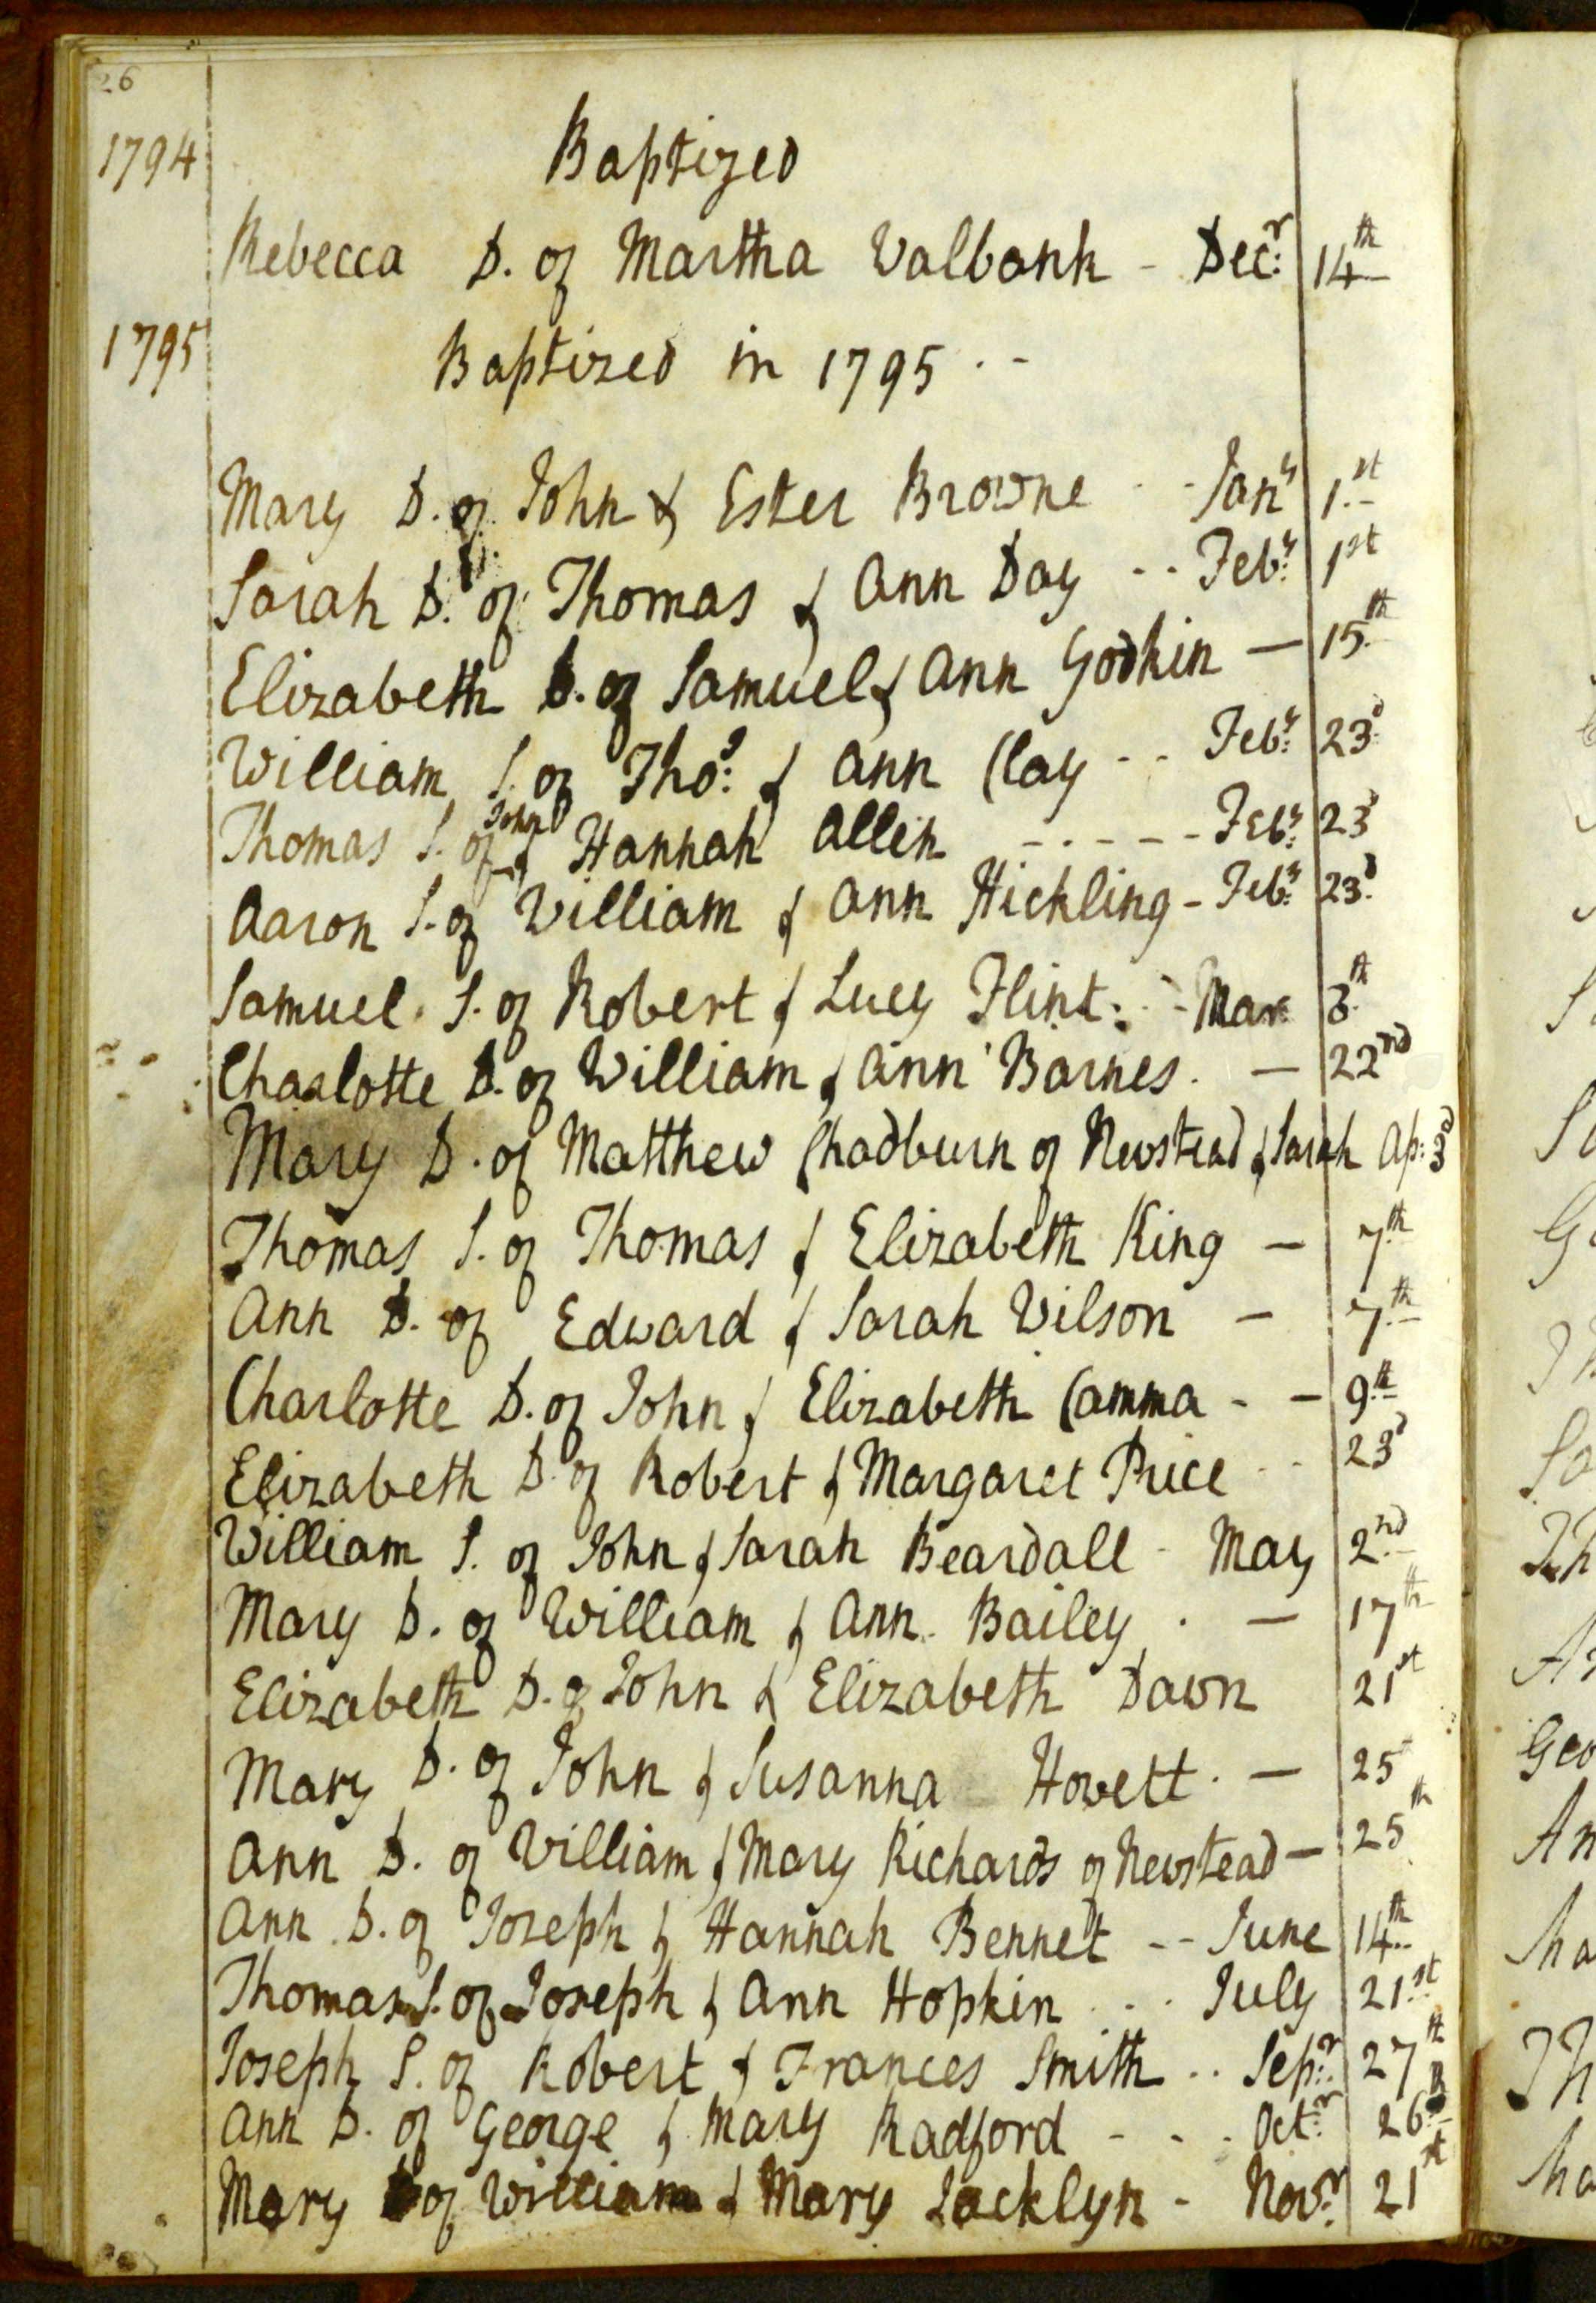 26
1794
Baptized
Rebecca D. of Martha Walbank - Decr 14th
1795
Baptized in 1795
Mary D. of John & Ester Browne - - Jany 1st
Sarah D. of Thomas & Ann Day - - Feby 1st
Elizabeth D. of Samuel & Ann Godkin — 15th
William S. of Thos: & Ann Clay - - Feby 23d
Thomas S. of John & Hannah Allen - - - - - Feby 23d
Aaron S. of William & Ann Hickling - Feby 23d
Samuel S. of Robert & Lucy Flint: - Mar 3th
Charlotte D. of William & Ann Barnes. — 22nd
Mary D. of Matthew Chadburn of Newstead & Sarah Ap: 3d
Thomas S. of Thomas & Elizabeth King — 7th
Ann D. of Edward & Sarah Wilson — 7th
Charlotte D. of John & Elizabeth Camma - — 9th
Elizabeth D. of Robert & Margaret Price - - 23d
William S. of John & Sarah Beardall - May 2nd
Mary D. of William & Ann Bailey . — 17th
Elizabeth D. of John & Elizabeth Dawn 21st
Mary D. of John & Susanna Howett . — 25
Ann D. of William & Mary Richards of Newstead — 25th
Ann D. of Joseph & Hannah Bennet - - June 14th
Thomas S. of Joseph & Ann Hopkin . . . July 21st
Joseph S. of Robert & Frances Smith . . Sepr: 27th
Ann D. of George & Mary Radford - - - Octr: 26th
Mary D of William & Mary Jacklyn - Novr: 21st